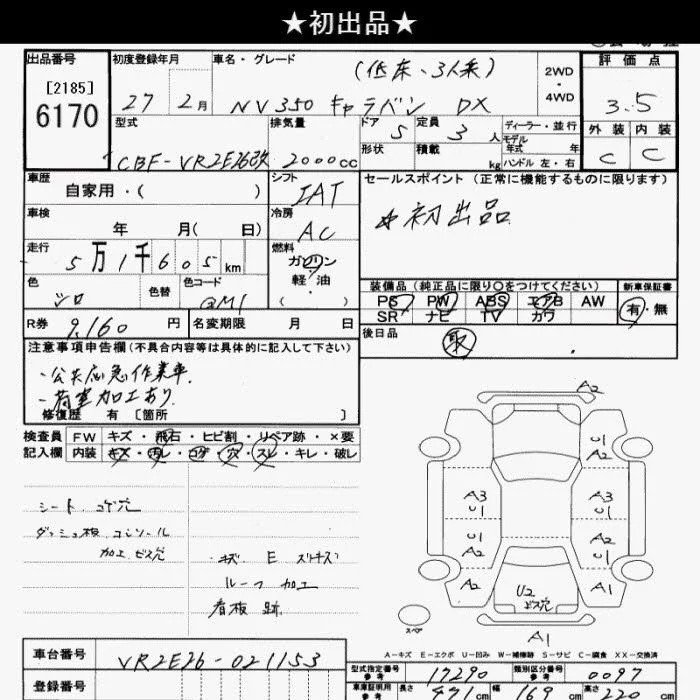 ★初出品★
出品番号 初度登録年月 車名・グレード (低床、3人乗) 2WD・4WD 評価点
[2185]
6170 27 2月 NV350 キャラバン DX 3.5
型式 排気量 ドア 5 定員 3人 ディーラー・並行 外装 内装
CBF-VR2E26改 2000cc 形状 積載 kg モデル年式 年 ハンドル 左・右 C C
車歴 自家用・( ) シフト IAT セールスポイント (正常に機能するものに限ります)
車検 年 月( 日) 冷房 AC ☆初出品
走行 5万1千605km 燃料 ガソリン・軽油 ( )
色 シロ 色替 色コード QM1 装備品 (純正品に限り○をつけてください) 新車保証書
PS PW ABS エアB AW 有・無
SR ナビ TV カワ
R券 9,160円 名変期限 月 日 後日品 取
注意事項申告欄 (不具合内容等は具体的に記入して下さい)
・公共応急作業車
・荷室加工あり
修復歴 有 [箇所 ]
検査員 FW キズ・飛石・ヒビ割・リペア跡・×要
記入欄 内装 キズ・汚レ・コゲ・穴・スレ・キレ・破レ
シート コゲ穴
ダッシュ板 コンソール
加工 ビス穴
キズ E スリキズ
ルーフ 加工
看板 跡
A2
U1
A2
A3 A3
U1 U1
A2 U1
U1 A2
A2 U2 A1
ビス穴
スペア
A1
A-キズ E-エクボ U-凹み W-補修跡 S-サビ C-腐食 XX-交換済
車台番号 VR2E26-021153
型式指定番号参考 17290 類別区分番号参考 0097
登録番号 車庫証明用参考 長さ 471cm 幅 169cm 高さ 220cm